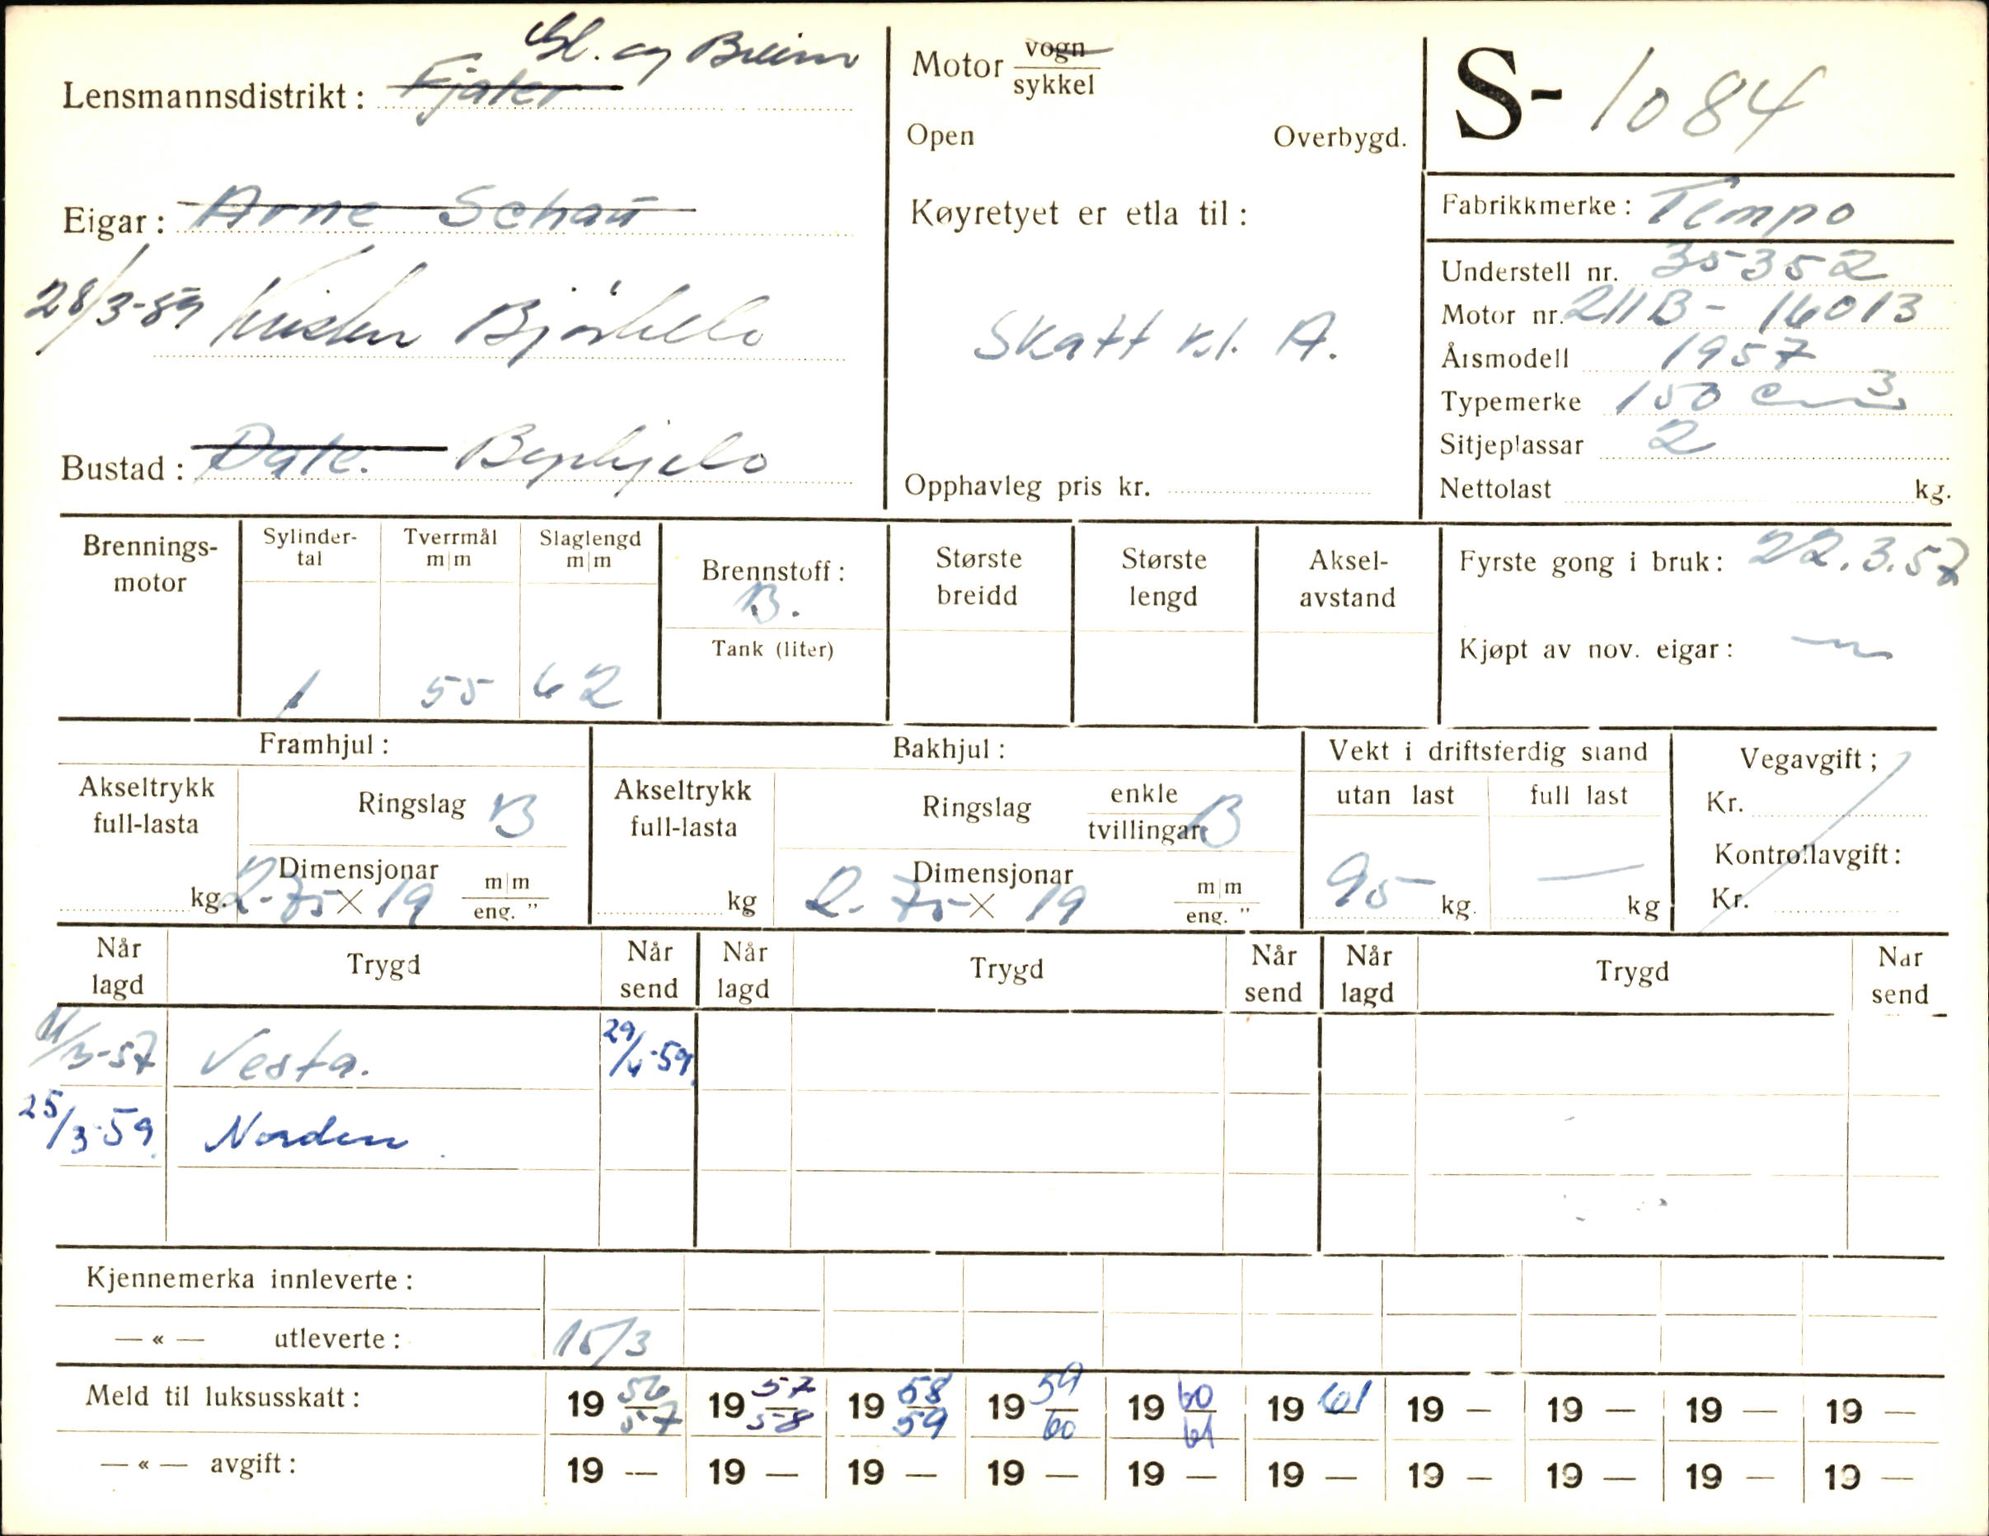 Gl. og Breim
Lensmannsdistrikt: Fjaler
Eigar: Arne Schau
28/3-59 Bjørkelo
Bustad: Dale. Byrkjelo
Motor vogn
sykkel
Open Overbygd.
Køyretyet er etla til:
Skatt kl. A.
Opphavleg pris kr.
S- 1084
Fabrikkmerke: Tempo
Understell nr. 35352
Motor nr. 211B - 16013
Årsmodell 1957
Typemerke 150 cm3
Sitjeplassar 2
Nettolast kg.
Brennings-
motor
Sylinder-
tal
1
Tverrmål
m|m
55
Slaglengd
m|m
62
Brennstoff:
B.
Tank (liter)
Største
breidd
Største
lengd
Aksel-
avstand
Fyrste gong i bruk: 22.3.57
Kjøpt av nov. eigar:
Framhjul:
Akseltrykk
full-lasta
kg.
Ringslag B
Dimensjonar m|m
2.75 × 19 eng. "
Bakhjul:
Akseltrykk
full-lasta
kg
Ringslag enkle
tvillingar B
Dimensjonar m|m
2.75 × 19 eng. "
Vekt i driftsferdig stand
utan last full last
95 kg. — kg
Vegavgift;
Kr.
Kontrollavgift:
Kr.
Når lagd Trygd Når send Når lagd Trygd Når send Når lagd Trygd Når send
11/3-57 Vesta. 29/4-59
25/3-59 Norden
Kjennemerka innleverte:
— « — utleverte: 15/3
Meld til luksusskatt: 19 56/57 19 57/58 19 58/59 19 59/60 19 60/61 19 61 19 — 19 — 19 — 19 —
— « — avgift: 19 — 19 — 19 — 19 — 19 — 19 — 19 — 19 — 19 — 19 —